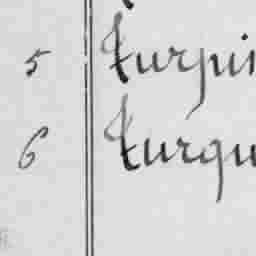 5 Turpi
6 Turqu